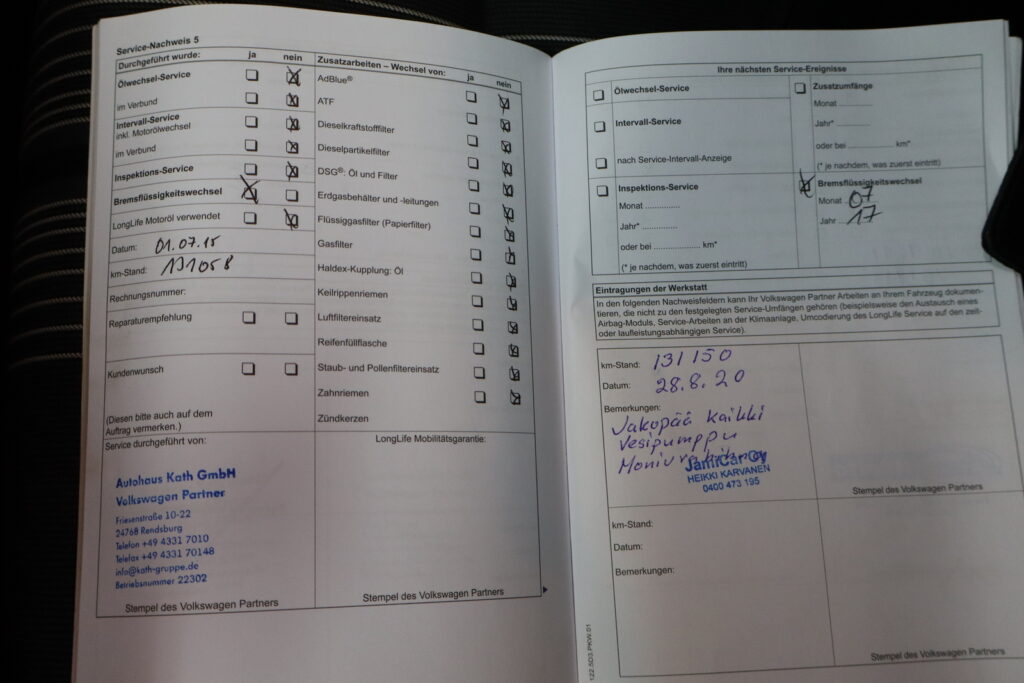 Service-Nachweis 5
Durchgeführt wurde: ja nein
Ölwechsel-Service
im Verbund
Intervall-Service
inkl. Motorölwechsel
im Verbund
Inspektions-Service
Bremsflüssigkeitswechsel
LongLife Motoröl verwendet
Datum: 01.07.15
km-Stand: 131058
Rechnungsnummer:
Reparaturempfehlung
Kundenwunsch
(Diesen bitte auch auf dem
Auftrag vermerken.)
Service durchgeführt von:
Autohaus Kath GmbH
Volkswagen Partner
Friesenstraße 10-22
24768 Rendsburg
Telefon +49 4331 7010
Telefax +49 4331 70148
info@kath-gruppe.de
Betriebsnummer 22302
Stempel des Volkswagen Partners
Zusatzarbeiten – Wechsel von: ja nein
AdBlue®
ATF
Dieselkraftstofffilter
Dieselpartikelfilter
DSG®: Öl und Filter
Erdgasbehälter und -leitungen
Flüssiggasfilter (Papierfilter)
Gasfilter
Haldex-Kupplung: Öl
Keilrippenriemen
Luftfiltereinsatz
Reifenfüllflasche
Staub- und Pollenfiltereinsatz
Zahnriemen
Zündkerzen
LongLife Mobilitätsgarantie:
Stempel des Volkswagen Partners
Ihre nächsten Service-Ereignisse
Ölwechsel-Service
Intervall-Service
nach Service-Intervall-Anzeige
Inspektions-Service
Monat ..............
Jahr* ..............
oder bei .................... km*
(* je nachdem, was zuerst eintritt)
Zusatzumfänge
Monat ..............
Jahr* ..............
oder bei .................... km*
(* je nachdem, was zuerst eintritt)
Bremsflüssigkeitswechsel
Monat 07
Jahr 17
Eintragungen der Werkstatt
In den folgenden Nachweisfeldern kann Ihr Volkswagen Partner Arbeiten an Ihrem Fahrzeug dokumen-
tieren, die nicht zu den festgelegten Service-Umfängen gehören (beispielsweise den Austausch eines
Airbag-Moduls, Service-Arbeiten an der Klimaanlage, Umcodierung des LongLife Service auf den zeit-
oder laufleistungsabhängigen Service).
km-Stand: 131150
Datum: 28.8.20
Bemerkungen:
Jakopää kaikki
Vesipumppu
JamrCar Oy
HEIKKI KARVANEN
0400 473 195
Stempel des Volkswagen Partners
km-Stand:
Datum:
Bemerkungen:
Stempel des Volkswagen Partners
122.5D3.PKW.01